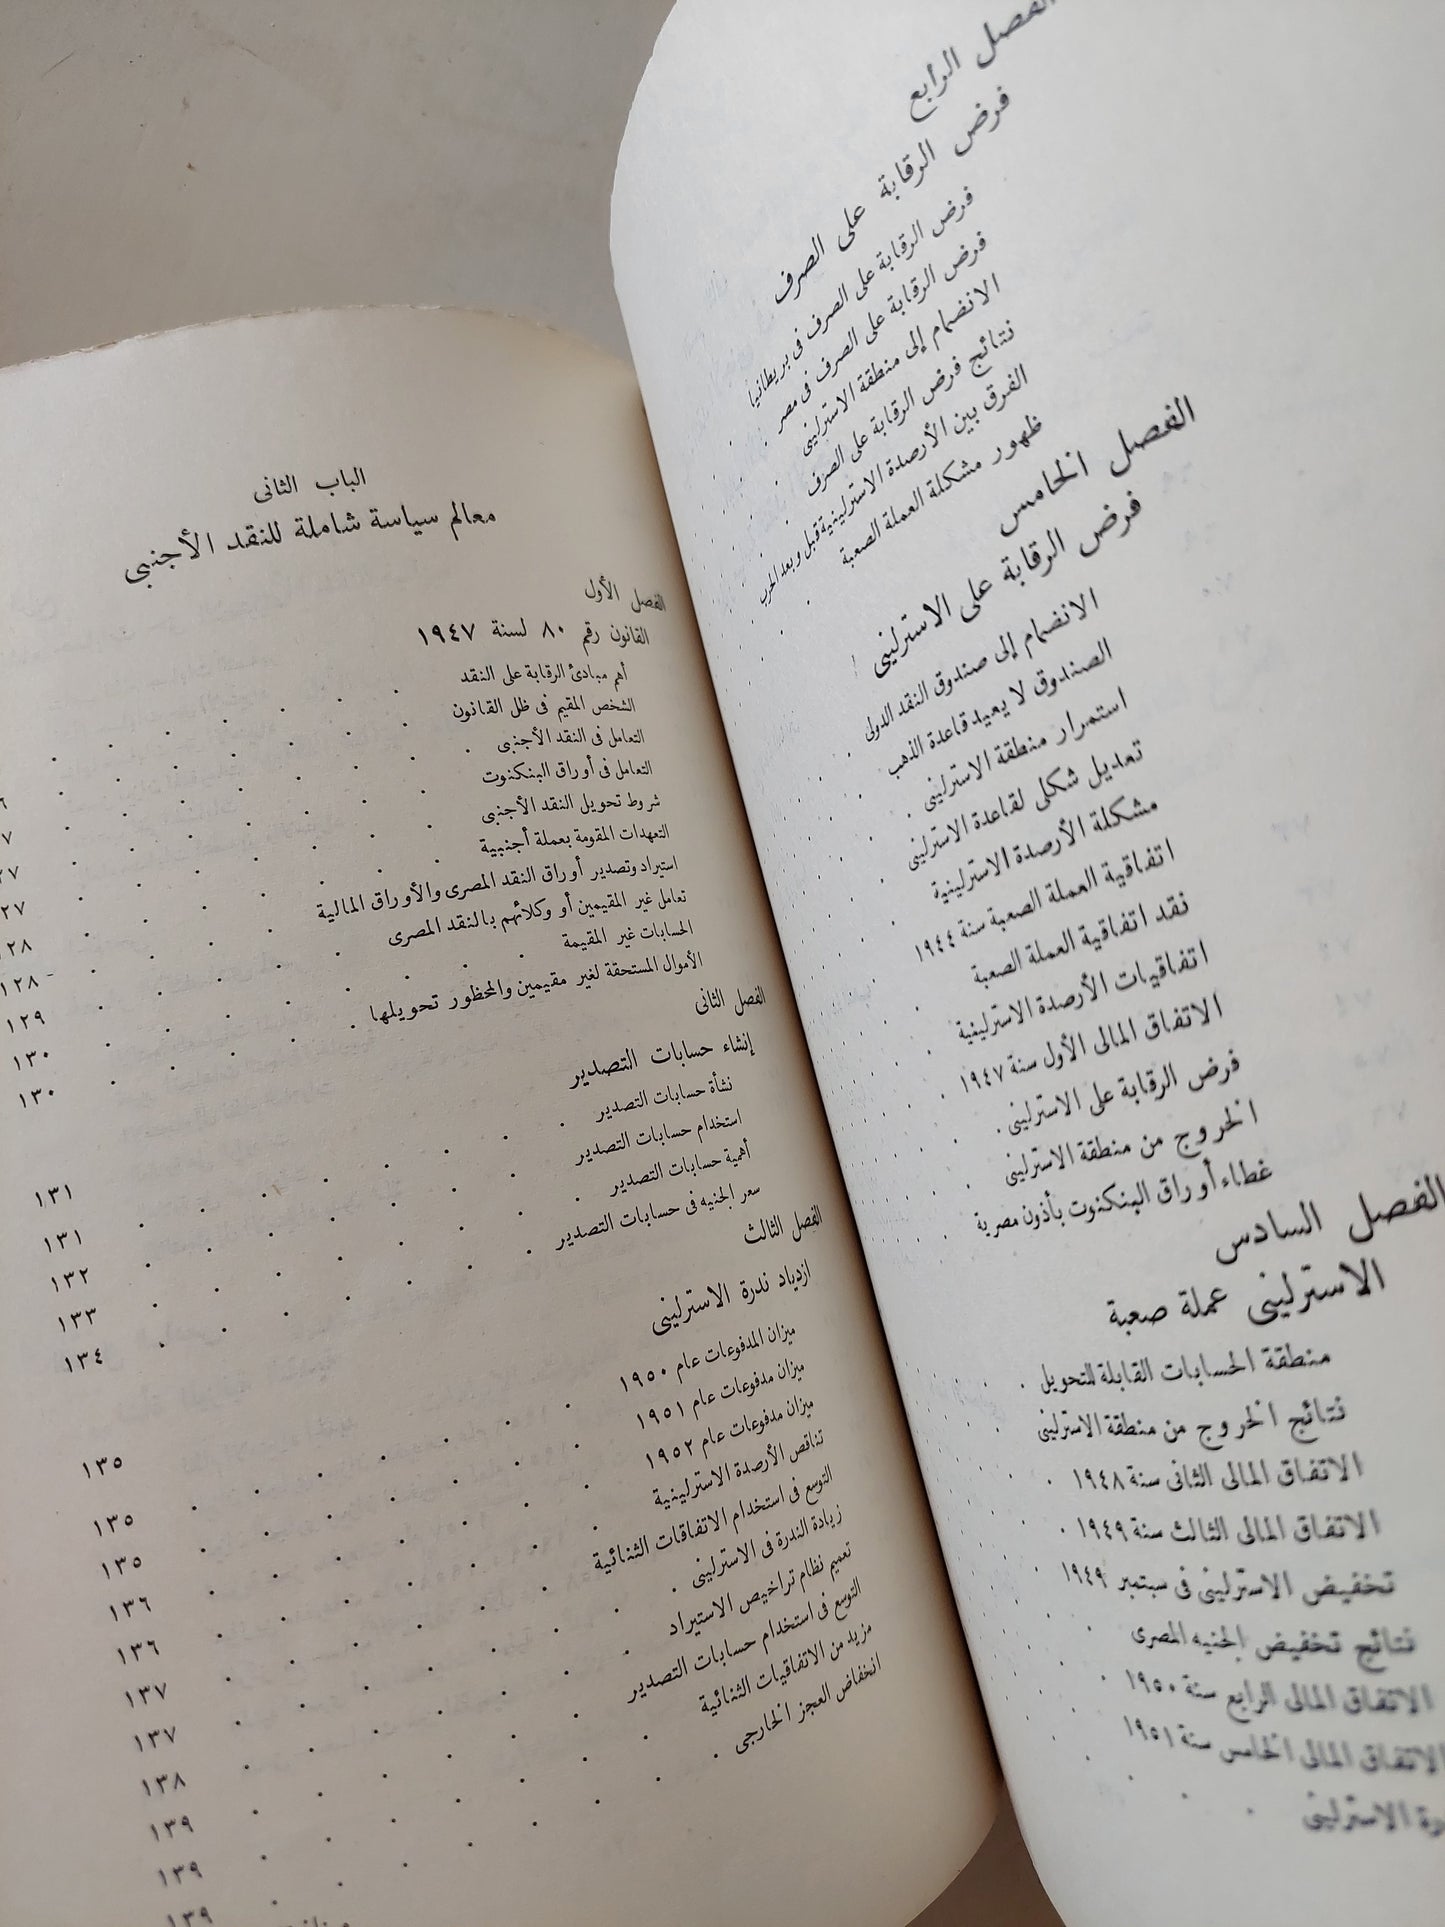 الفصل الرابع
فرض الرقابة على الصرف
فرض الرقابة على الصرف فى بريطانيا
فرض الرقابة على الصرف فى مصر
الانضمام إلى منطقة الاسترلينى
نتائج فرض الرقابة على الصرف
الفرق بين الأرصدة الاسترلينية قبل وبعد الحرب
ظهور مشكلة العملة الصعبة
الفصل الخامس
فرض الرقابة على الاسترلينى
الانضمام إلى صندوق النقد الدولى
الصندوق لا يعيد قاعدة الذهب
استمرار منطقة الاسترلينى
تعديل شكلى لقاعدة الاسترلينى
مشكلة الأرصدة الاسترلينية
اتفاقية العملة الصعبة سنة ١٩٤٤
نقد اتفاقية العملة الصعبة
اتفاقيات الأرصدة الاسترلينية
الاتفاق المالى الأول سنة ١٩٤٧
فرض الرقابة على الاسترلينى
الخروج من منطقة الاسترلينى
غطاء أوراق البنكنوت بأذون مصرية
الفصل السادس
الاسترلينى عملة صعبة
منطقة الحسابات القابلة للتحويل
نتائج الخروج من منطقة الاسترلينى
الاتفاق المالى الثانى سنة ١٩٤٨
الاتفاق المالى الثالث سنة ١٩٤٩
تخفيض الاسترلينى فى سبتمبر ١٩٤٩
نتائج تخفيض الجنيه المصرى
الاتفاق المالى الرابع سنة ١٩٥٠
الاتفاق المالى الخامس سنة ١٩٥١
الاسترلينى
الباب الثانى
معالم سياسة شاملة للنقد الأجنبى
الفصل الأول
القانون رقم ٨٠ لسنة ١٩٤٧
أهم مبادئ الرقابة على النقد
الشخص المقيم فى ظل القانون
التعامل فى النقد الأجنبى
التعامل فى أوراق البنكنوت
شروط تحويل النقد الأجنبى
التعهدات المقومة بعملة أجنبية
استيراد وتصدير أوراق النقد المصرى والأوراق المالية ١٢٨
تعامل غير المقيمين أو وكلائهم بالنقد المصرى ١٢٩
الحسابات غير المقيمة ١٣٠
الأموال المستحقة لغير مقيمين والمحظور تحويلها ١٣٠
الفصل الثانى
إنشاء حسابات التصدير ١٣١
نشأة حسابات التصدير ١٣١
استخدام حسابات التصدير ١٣٢
أهمية حسابات التصدير ١٣٣
سعر الجنيه فى حسابات التصدير ١٣٤
الفصل الثالث
ازدياد ندرة الاسترلينى ١٣٥
ميزان المدفوعات عام ١٩٥٠ ١٣٥
ميزان مدفوعات عام ١٩٥١ ١٣٥
ميزان مدفوعات عام ١٩٥٢ ١٣٦
تناقص الأرصدة الاسترلينية ١٣٦
التوسع فى استخدام الاتفاقات الثنائية ١٣٧
زيادة الندرة فى الاسترلينى ١٣٧
تعميم نظام تراخيص الاستيراد ١٣٨
التوسع فى استخدام حسابات التصدير ١٣٩
مزيد من الاتفاقيات الثنائية ١٣٩
انخفاض العجز الخارجى ١٣٩